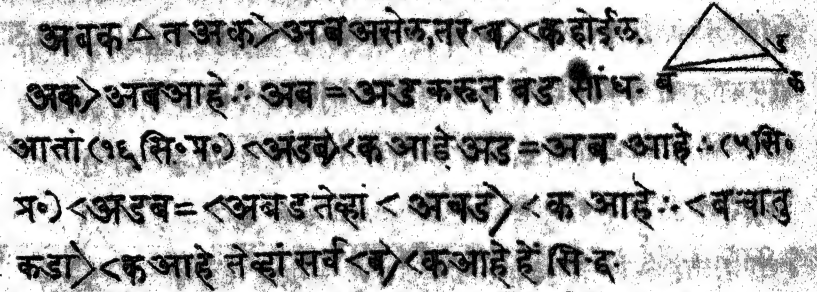 अबक △ त अक > अब असेल, तर <ब > <क होईल.
अक > अब आहे ∴ अब = अड करून बड सांध.
आतां (१६ सि॰ प्र॰) <अडब > <क आहे अड = अब आहे ∴ (५ सि॰
प्र॰) <अडब = <अबड तेव्हां < अबड > <क आहे ∴ <बचा तु
कडा > <क आहे तेव्हां सर्व <ब > <क आहे हें सि द्द.
ड
ब
क